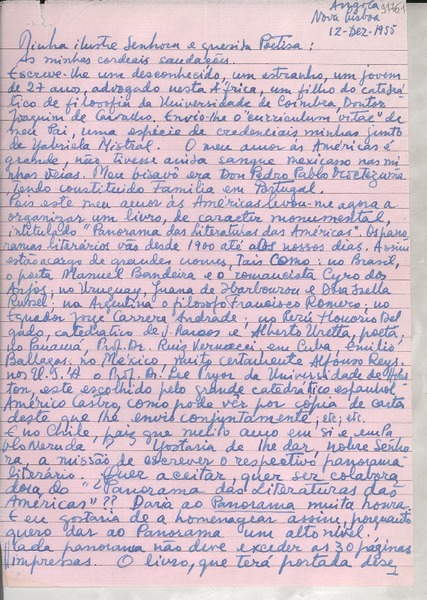 Angola
Nova Lisboa
12-Dez-1955
Minha ilustre Senhora e querida Poetisa:
As minhas cordeais saudações.
Escreve-lhe um desconhecido, um estranho, um jovem
de 27 anos, advogado nesta África, um filho do catedrá
tico de filosofia da Universidade de Coimbra, Doutor
Joaquim de Carvalho. Envio-lhe o "curriculum vitae" de
meu Pai, uma espécie de credenciais minhas junto
de Gabriela Mistral. O meu amor às Américas é
grande, não tivesse ainda sangue mexicano nas mi
nhas veias. Meu bisavô era Don Pedro Pablo
tendo constituido Família em Portugal.
Pois este meu amor às Américas levou-me agora a
organizar um livro, de caracter monumental e,
intitulado "Panorama das Literaturas das Américas". Os pano
ramas literários vão desde 1900 até aos nossos dias. Assim
estão a cargo de grandes nomes, tais como: no Brasil,
o poeta Manuel Bandeira e o romancista Cyro dos
Anjos; no Uruguay, Juana de Ibarbourou e
no Argentina o filósofo Francisco Romero; no
Equador Jorge Carrera Andrade; no Perú Honorio Del
gado, catedratico de e Alberto Uretta, poeta;
no Panamá, Prof. Dr. Ruiz Vernacci, em Cuba, Emilio
Ballagas; no México, muito certamente Alfonso Reys;
nos U.S.A o Prof. Dr. Lee Pryor da Universidade de Hous
ton, este escolhido pelo grande catedrático espanhol
Américo Castro, como pode vêr por cópia de carta
deste que lhe envio conjuntamente; etc, etc.
E no Chile, país que muito amo em si e em Pa
blo Neruda? Gostaria de lhe dar, nobre Senho
ra, a missão de escrever o respectivo panorama
literário. Quer aceitar, quer ser colabora
dora do "Panorama das Literaturas das
Américas"?? Daria ao Panorama muita honra.
E eu gostaria de a homenagear assim, porquanto
quero dar ao Panorama um alto nível.
Cada panorama não deve exceder as 30 páginas
impressas. O livro, que terá portada